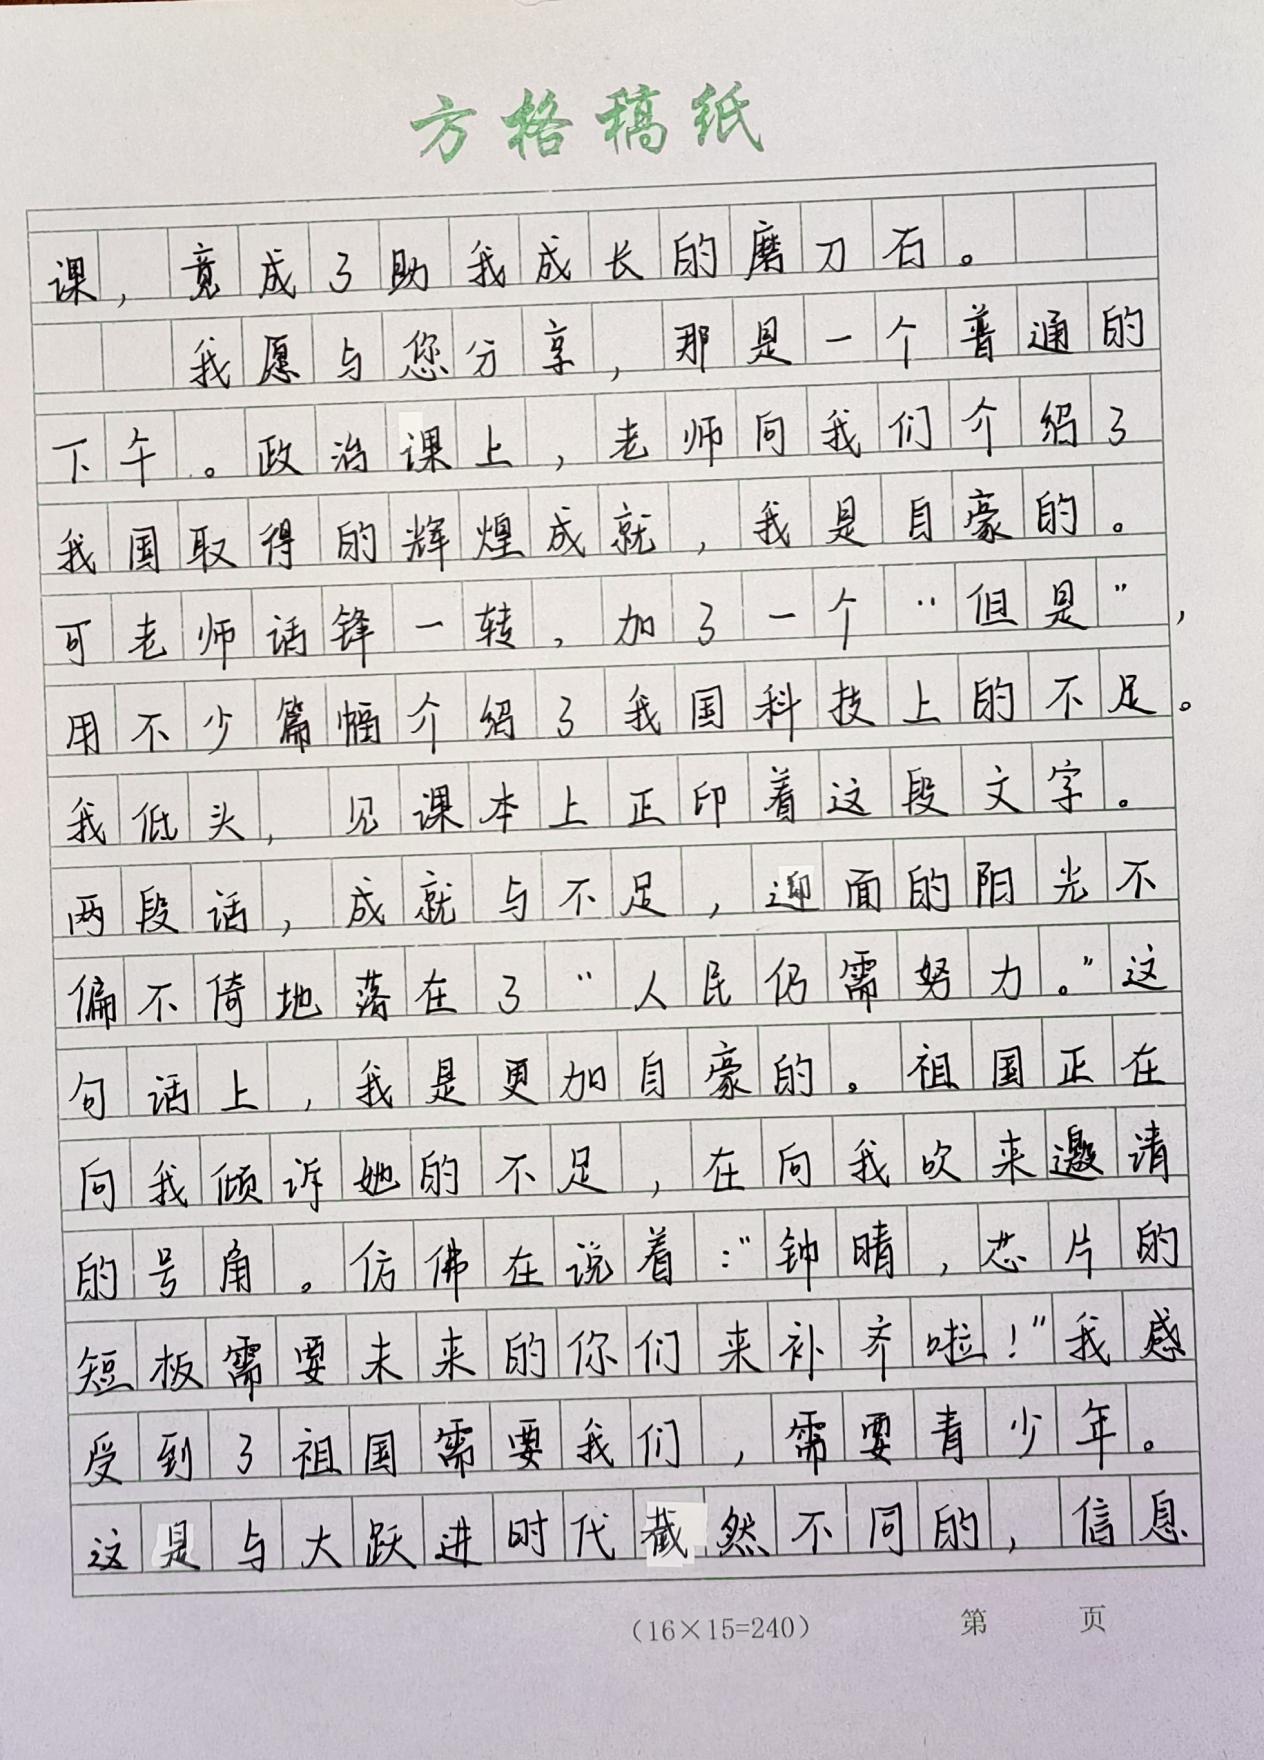 方格稿纸
课，竟成了助我成长的磨刀石。
我愿与您分享，那是一个普通的
下午。政治课上，老师向我们介绍了
我国取得的辉煌成就，我是自豪的。
可老师话锋一转，加了一个“但是”，
用不少篇幅介绍了我国科技上的不足。
我低头，见课本上正印着这段文字。
两段话，成就与不足，迎面的阳光不
偏不倚地落在了“人民仍需努力。”这
句话上，我是更加自豪的。祖国正在
向我倾诉她的不足，在向我吹来邀请
的号角。仿佛在说着：“钟晴，芯片的
短板需要未来的你们来补齐啦！”我感
受到了祖国需要我们，需要青少年。
这是与大跃进时代截然不同的，信息
（16×15=240） 第 页